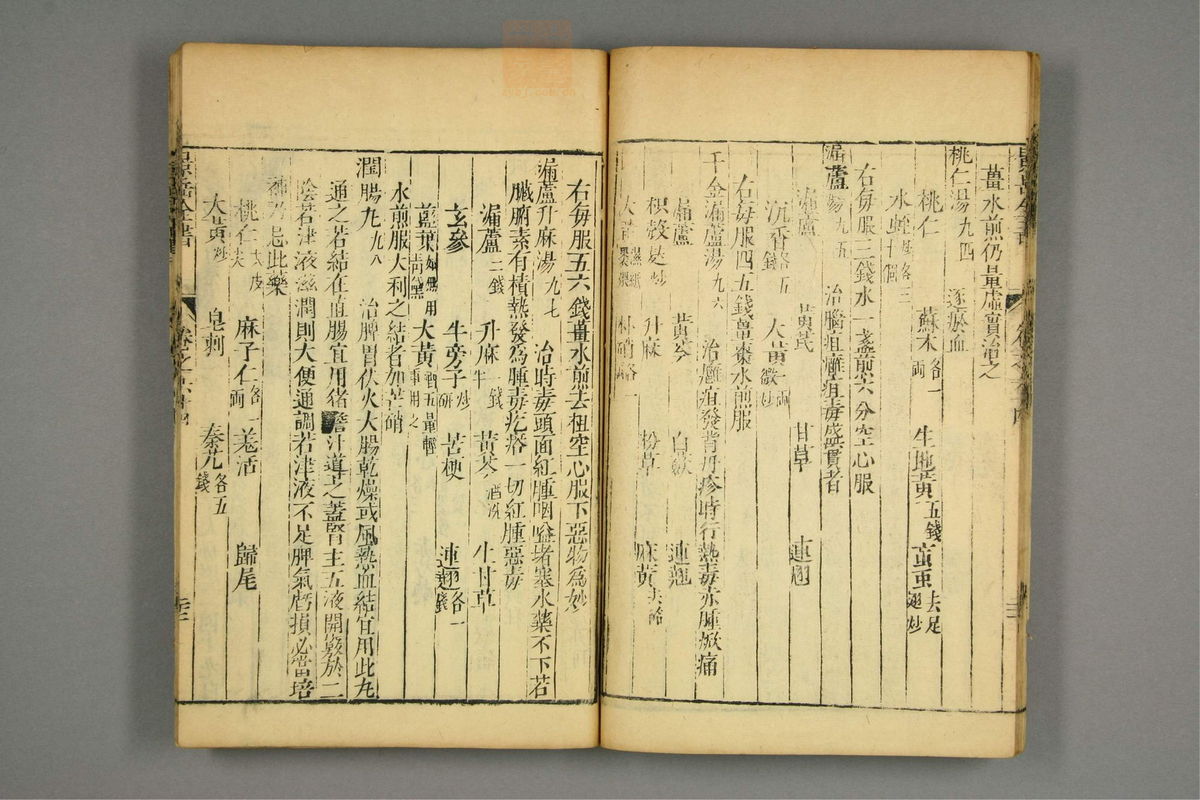 薑水煎仍量虛實治之
桃仁湯九四 逐瘀血
桃仁 蘇木各一兩 生地黃五錢 䖟蟲去足翅炒
水蛭 十個
漏蘆湯九五 治腦疽癰疽毒盛實者
右每服三錢水一盞煎六分空心服
漏蘆 黃芪 連翹
沉香各五錢 大黃一兩微炒 甘草
右每服四五錢薑棗水煎服
千金漏蘆湯九六 治癰疽發背丹疹時行熱毒赤腫焮痛
漏蘆 黃芩 白蘞 連翹
枳殼麩炒 升麻 粉草 麻黃去節
大黃濕紙裹煨
右每服五六錢薑水煎去柤空心服下惡物為妙
漏蘆升麻湯九七 治時毒頭面紅腫咽嗌堵塞水藥不下若
臟腑素有積熱發為腫毒疙瘩一切紅腫惡毒
漏蘆二錢 升麻一錢半 黃芩酒洗 生甘草
玄參 牛旁子炒研 苦梗 連翹各一錢
藍葉如無用青黛 大黃酒五量輕重用之
水煎服大利之結者加芒硝
潤腸丸九八 治脾胃伏火大腸乾燥或風熱血結宜用此丸
通之若結在直腸宜用猪膽汁導之蓋腎主五液開竅於二
陰若津液滋潤則大便通調若津液不足脾氣虧損必當培
補乃忌此藥
桃仁去皮尖 麻子仁各一兩 羗活 歸尾
大黃炒 皂刺 秦艽各五錢
景岳全書 卷之六十四